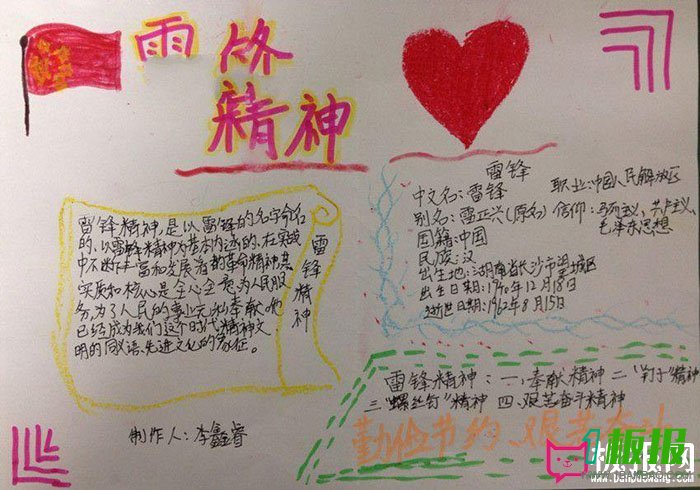 雷锋
精神
雷锋精神,是以雷锋的名字命名
的、以雷锋精神为基本内涵的、在实践
中不断丰富和发展着的革命精神,其
实质和核心是全心全意为人民服
务,为了人民的事业无私奉献。她
已经成为我们这个时代精神文
明的同义语、先进文化的象征。
雷锋精神
制作人:李鑫睿
雷锋
中文名:雷锋
职业:中国人民解放
别名:雷正兴(原名)
信仰:马列主义、共产主义、
毛泽东思想
国籍:中国
民族:汉
出生地:湖南省长沙市望城区
出生日期:1940年12月18日
逝世日期:1962年8月15日
雷锋精神:一、奉献精神 二、"钉子"精神
三、"螺丝钉"精神 四、艰苦奋斗精神
勤俭节约、艰苦奋斗
板报网